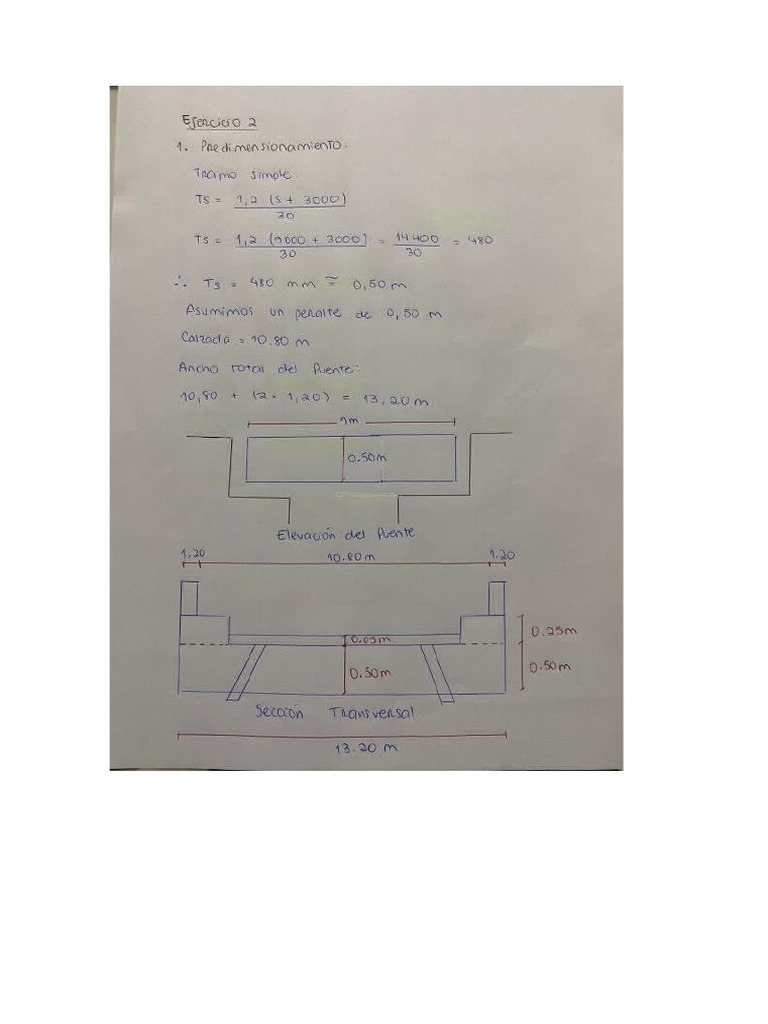 Ejercicio 2
1. Predimensionamiento:
Tramo simple:
Ts = 1,2 (S + 3000) / 30
Ts = 1,2 (9000 + 3000) / 30 = 14400 / 30 = 480
∴ Ts = 480 mm ≅ 0,50 m
Asumimos un peralte de 0,50 m
Calzada = 10.80 m
Ancho total del puente:
10,80 + (2 * 1,20) = 13,20 m
9m
0.50m
Elevación del puente
1.20 10.80 m 1.20
0.05m 0.25m
0.50m 0.50m
Sección Transversal
13.20 m